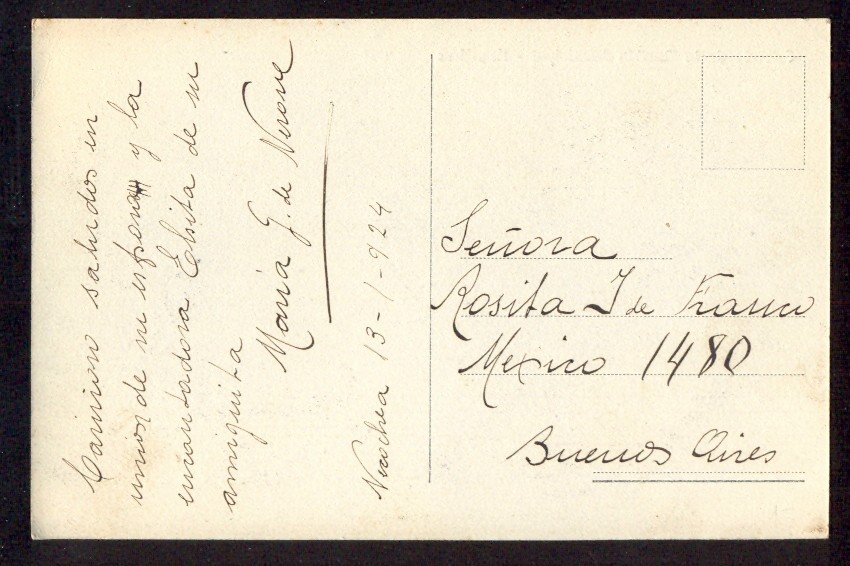 Carinosos saludos en
union de su esposo y la
encantadora Elsita de su
amiguita
Maria G. de Nerone
Necochea 13-1-924
Señora
Rosita I de Franco
Mexico 1480
Buenos Aires